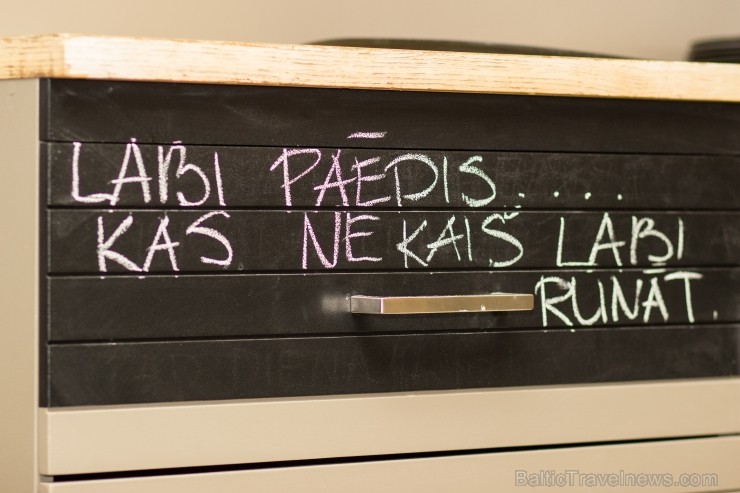 LABI PAĒDIS.....
KAS NEKAIŠ LABI
RUNĀT.
BalticTravelnews.com